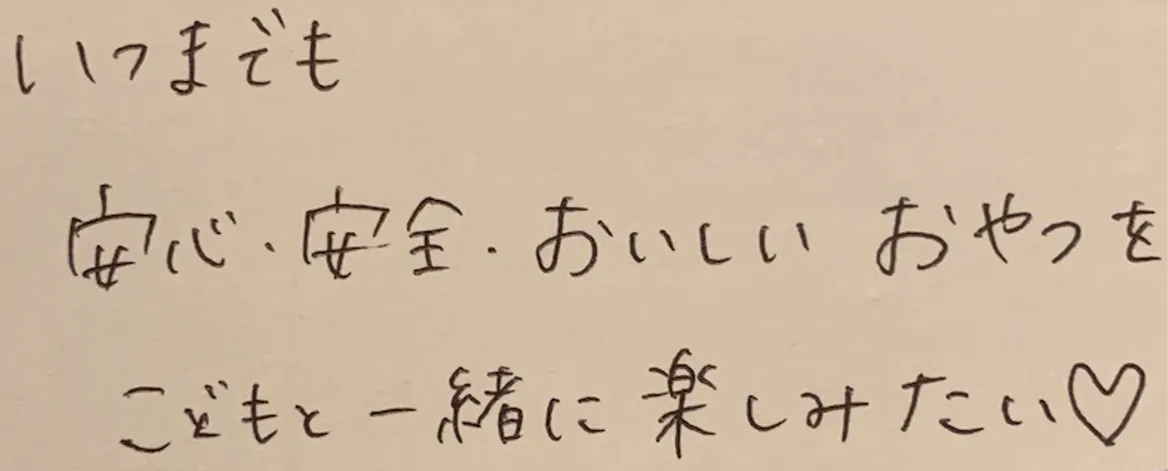 いつまでも
安心・安全・おいしい おやつを
こどもと一緒に楽しみたい♡